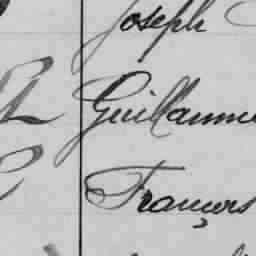 Joseph
Guillaume
François